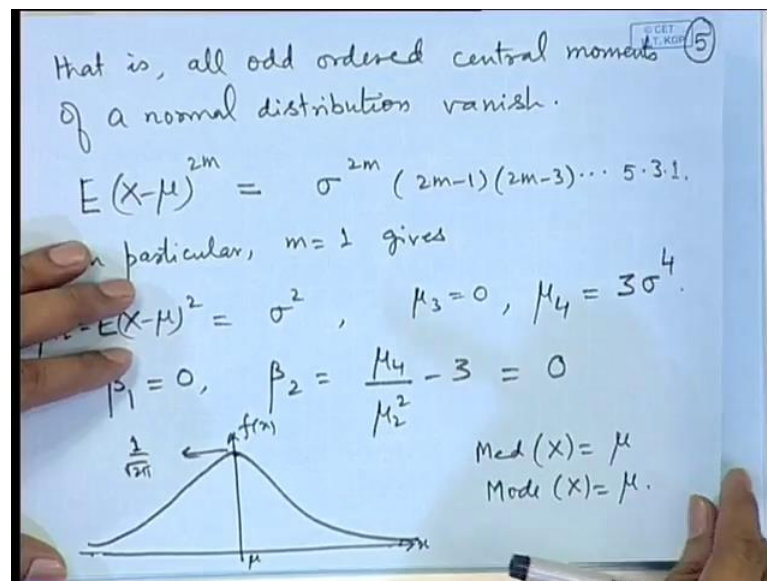 © CET
I.I.T. KGP
5
that is, all odd ordered central moments
of a normal distribution vanish.
E(X-μ)^{2m} = σ^{2m} (2m-1)(2m-3)··· 5·3·1.
particular, m=1 gives
E(X-μ)² = σ², μ₃=0, μ₄ = 3σ⁴.
β₁ = 0, β₂ = μ₄/μ₂² - 3 = 0
f(x)
1/√2π
Med (X) = μ
Mode (X) = μ.
x
μ